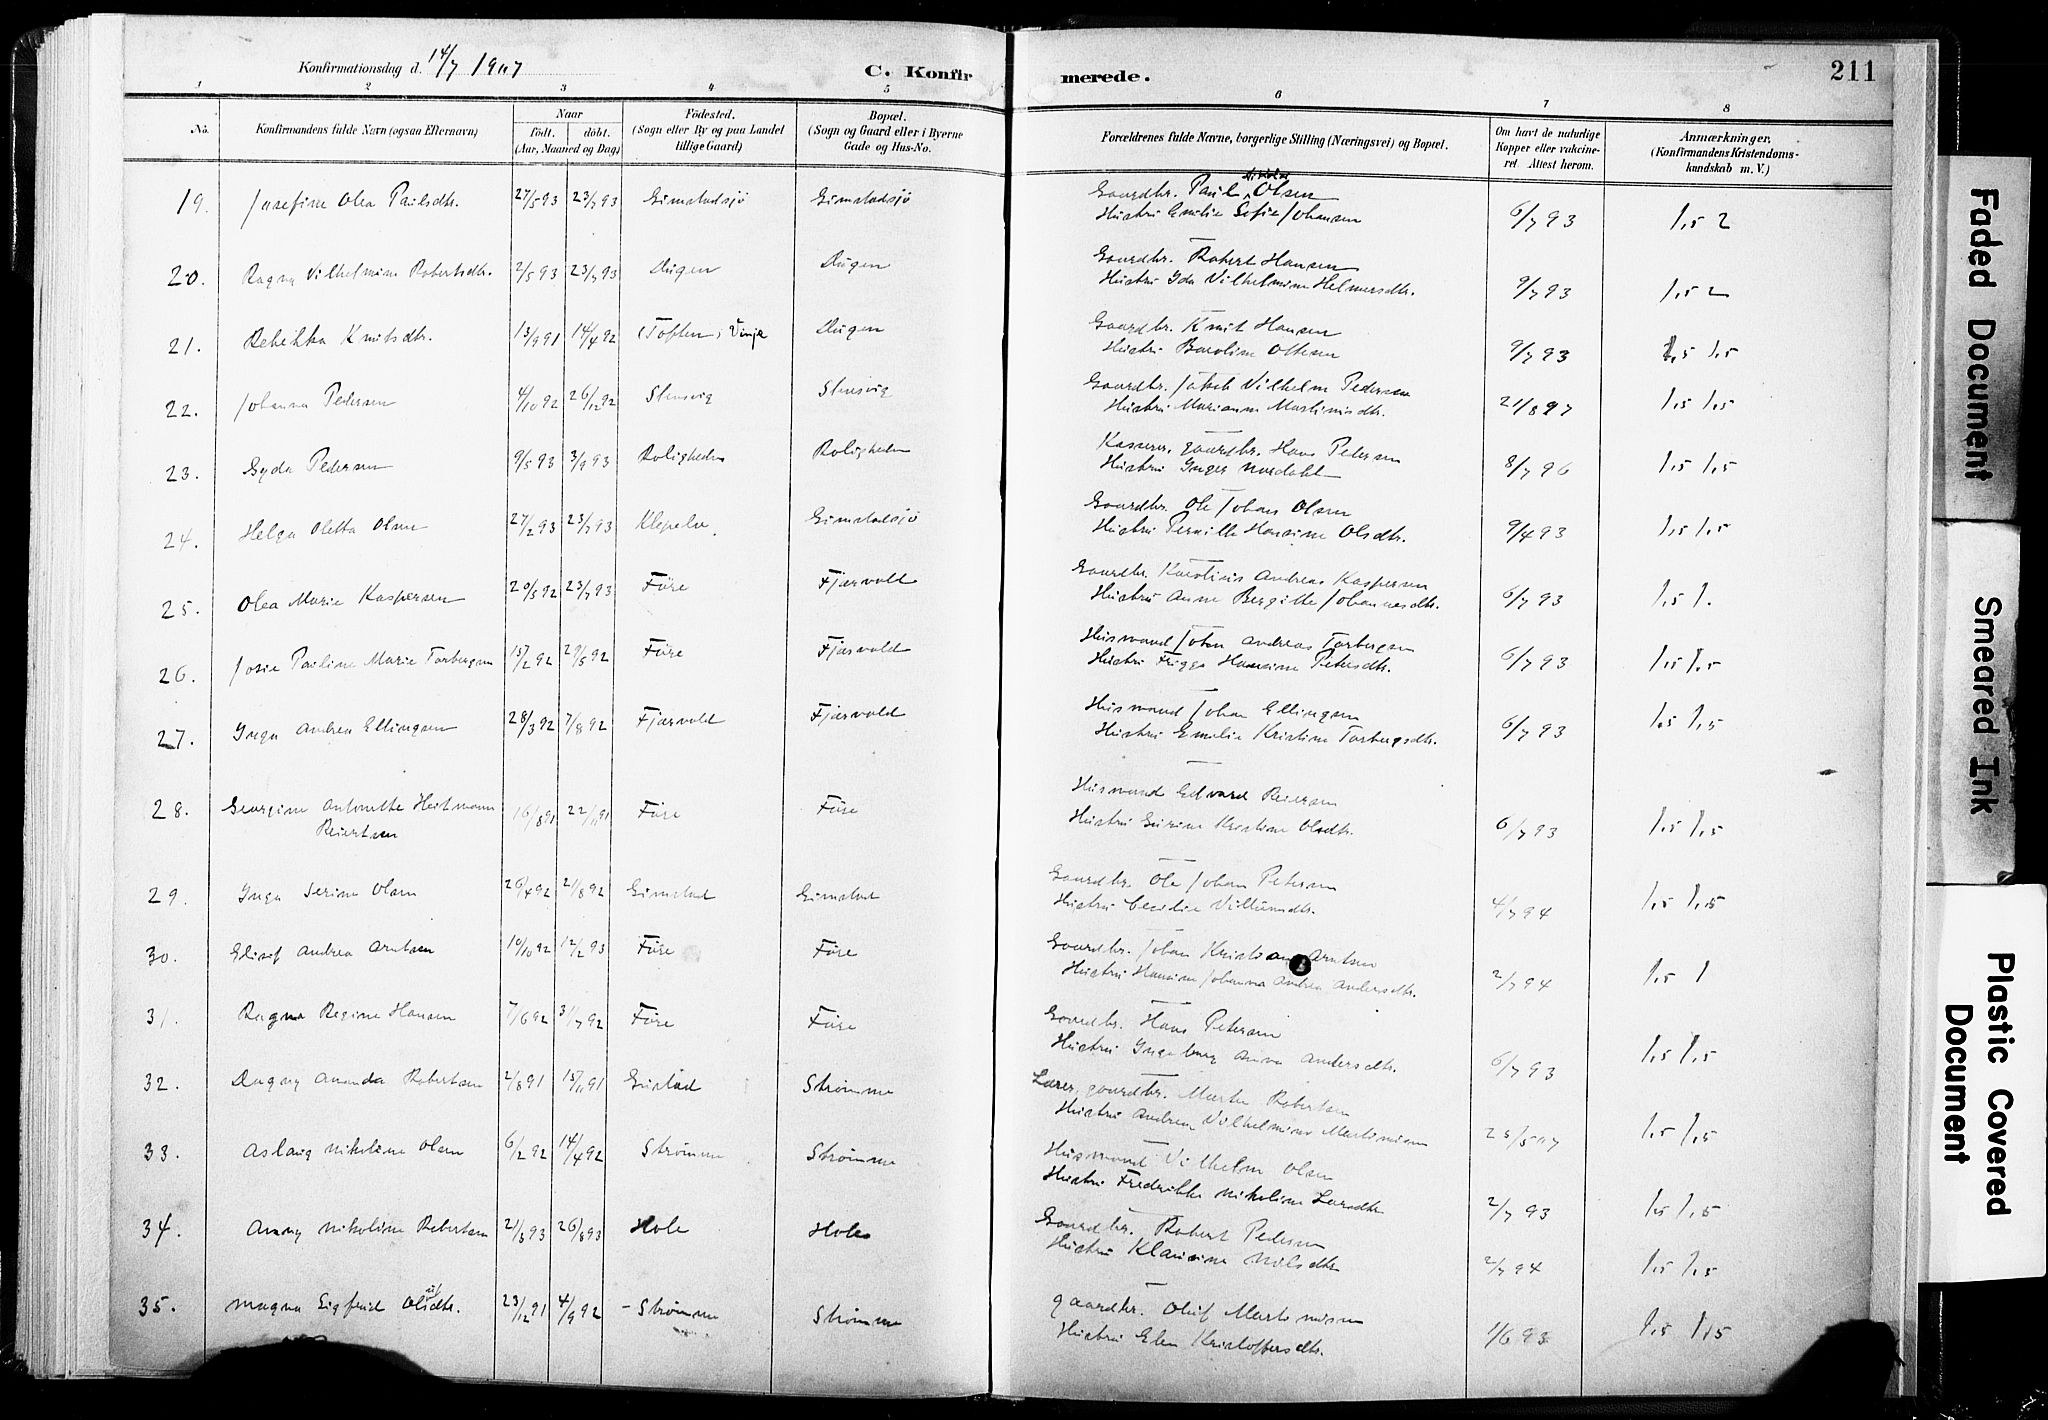 Konfirmationsdag d. 14/7 1907
C. Konfirmerede.
211
1 2 3 4 5 6 7 8
No.
Konfirmandens fulde Navn (ogsaa Efternavn)
Naar født. døbt. (Aar, Maaned og Dag)
Fødested. (Sogn eller By og paa Landet tillige Gaard)
Bopæl. (Sogn og Gaard eller i Byerne Gade og Hus-No.
Forældrenes fulde Navne, borgerlige Stilling (Næringsvei) og Bopæl.
Om havt de naturlige Kopper eller vakcineret. Attest herom.
Anmærkninger. (Konfirmandens Kristendomskundskab m. V.)
19. Josefine Olea Paulsdtr. 27/5 93 23/7 93 Gimstadsjö Gimstadsjö Gaardbr. Paul Olsen
Hustru Emilie Sofie Johansen 6/7 93 1,5 2
20. Ragna Vilhelmine Robertsdtr. 2/5 93 23/7 93 Augen Augen Gaardbr. Robert Hansen
Hustru Ida Vilhelmine Helmersdtr. 9/7 93 1,5 2
21. Rebekka Knutsdtr. 13/9 91 14/4 92 (Toften, Vinje Augen Gaardbr. Knut Hansen
Hustru Baroline Ottesen 9/7 93 1,5 1,5
22. Johanna Pedersen 4/10 92 26/12 92 Stensvig Stensvig Gaardbr. Jakob Vilhelm Pedersen
Hustru Marianne Martinusdtr. 21/8 97 1,5 1,5
23. Gyda Pedersen 9/5 93 3/9 93 Roligheden Roligheden Kasserer, gaardbr. Hans Petersen
Hustru Inger Nordahl 8/7 96 1,5 1,5
24. Helga Oletta Olsen 27/2 93 23/7 93 Klepelv Gimstadsjö Gaardbr. Ole Johan Olsen
Hustru Pernille Hansine Olsdtr. 9/4 93 1,5 1,5
25. Olea Marie Kaspersen 20/5 92 23/7 93 Före Fjærvold Gaardbr. Karolius Andreas Kaspersen
Hustru Anne Bergitte Johannesdtr. 6/7 93 1,5 1.
26. Josie Pauline Marie Torbergsen 15/2 92 29/5 92 Före Fjærvold Husmand Johan Andreas Torbergsen
Hustru Frigga Hansine Petersdtr. 6/7 93 1,5 1,5
27. Inga Andrea Ellingsen 28/3 92 7/8 92 Fjærvold Fjærvold Husmand Johan Ellingsen
Hustru Emelie Kristine Torbergsdtr. 6/7 93 1,5 1,5
28. Georgine Antonette Heitmann Reiertsen 16/8 91 22/11 91 Före Före Husmand Edvard Reiersen
Hustru Gurine Kristine Olsdtr. 6/7 93 1,5 1,5
29. Inga Serine Olsen 26/4 92 21/8 92 Gimstad Gimstad Gaardbr. Ole Johan Petersen
Hustru Cecilie Villumsdtr. 4/7 94 1,5 1,5
30. Elisif Andrea Arntsen 10/10 92 12/2 93 Före Före Gaardbr. Johan Kristian Arntsen
Hustru Hansine Johanna Andrea Andersdtr. 2/7 94 1,5 1
31. Ragna Regine Hansen 7/6 92 31/7 92 Före Före Gaardbr. Hans Petersen
Hustru Ingeborg Anna Andersdtr. 6/7 93 1,5 1,5
32. Dagny Amanda Robertsen 2/8 91 15/11 91 Gistad Strømme Lærer, gaardbr. Martin Robertsen
Hustru Andrea Vilhelmine Martinusen 23/5 07 1,5 1,5
33. Aslaug Nikoline Olsen 6/2 92 14/4 92 Strømme Strømme Husmand Vilhelm Olsen
Hustru Fredrikke Nikoline Larsdtr 2/7 93 1,5 1,5
34. Anny Nikoline Robertsen 21/3 93 26/8 93 Hole Hole Gaardbr. Robert Pedersen
Hustru Klausine Nilsdtr. 2/7 94 1,5 1,5
35. Magna Sigfrid Olufsdtr. 23/12 91 4/9 92 Strømme Strømme gaardbr. Oluf Martinusen
Hustru Elen Kristoffersdtr. 1/6 93 1,5 1,5
Faded Document
Smeared Ink
Plastic Covered Document